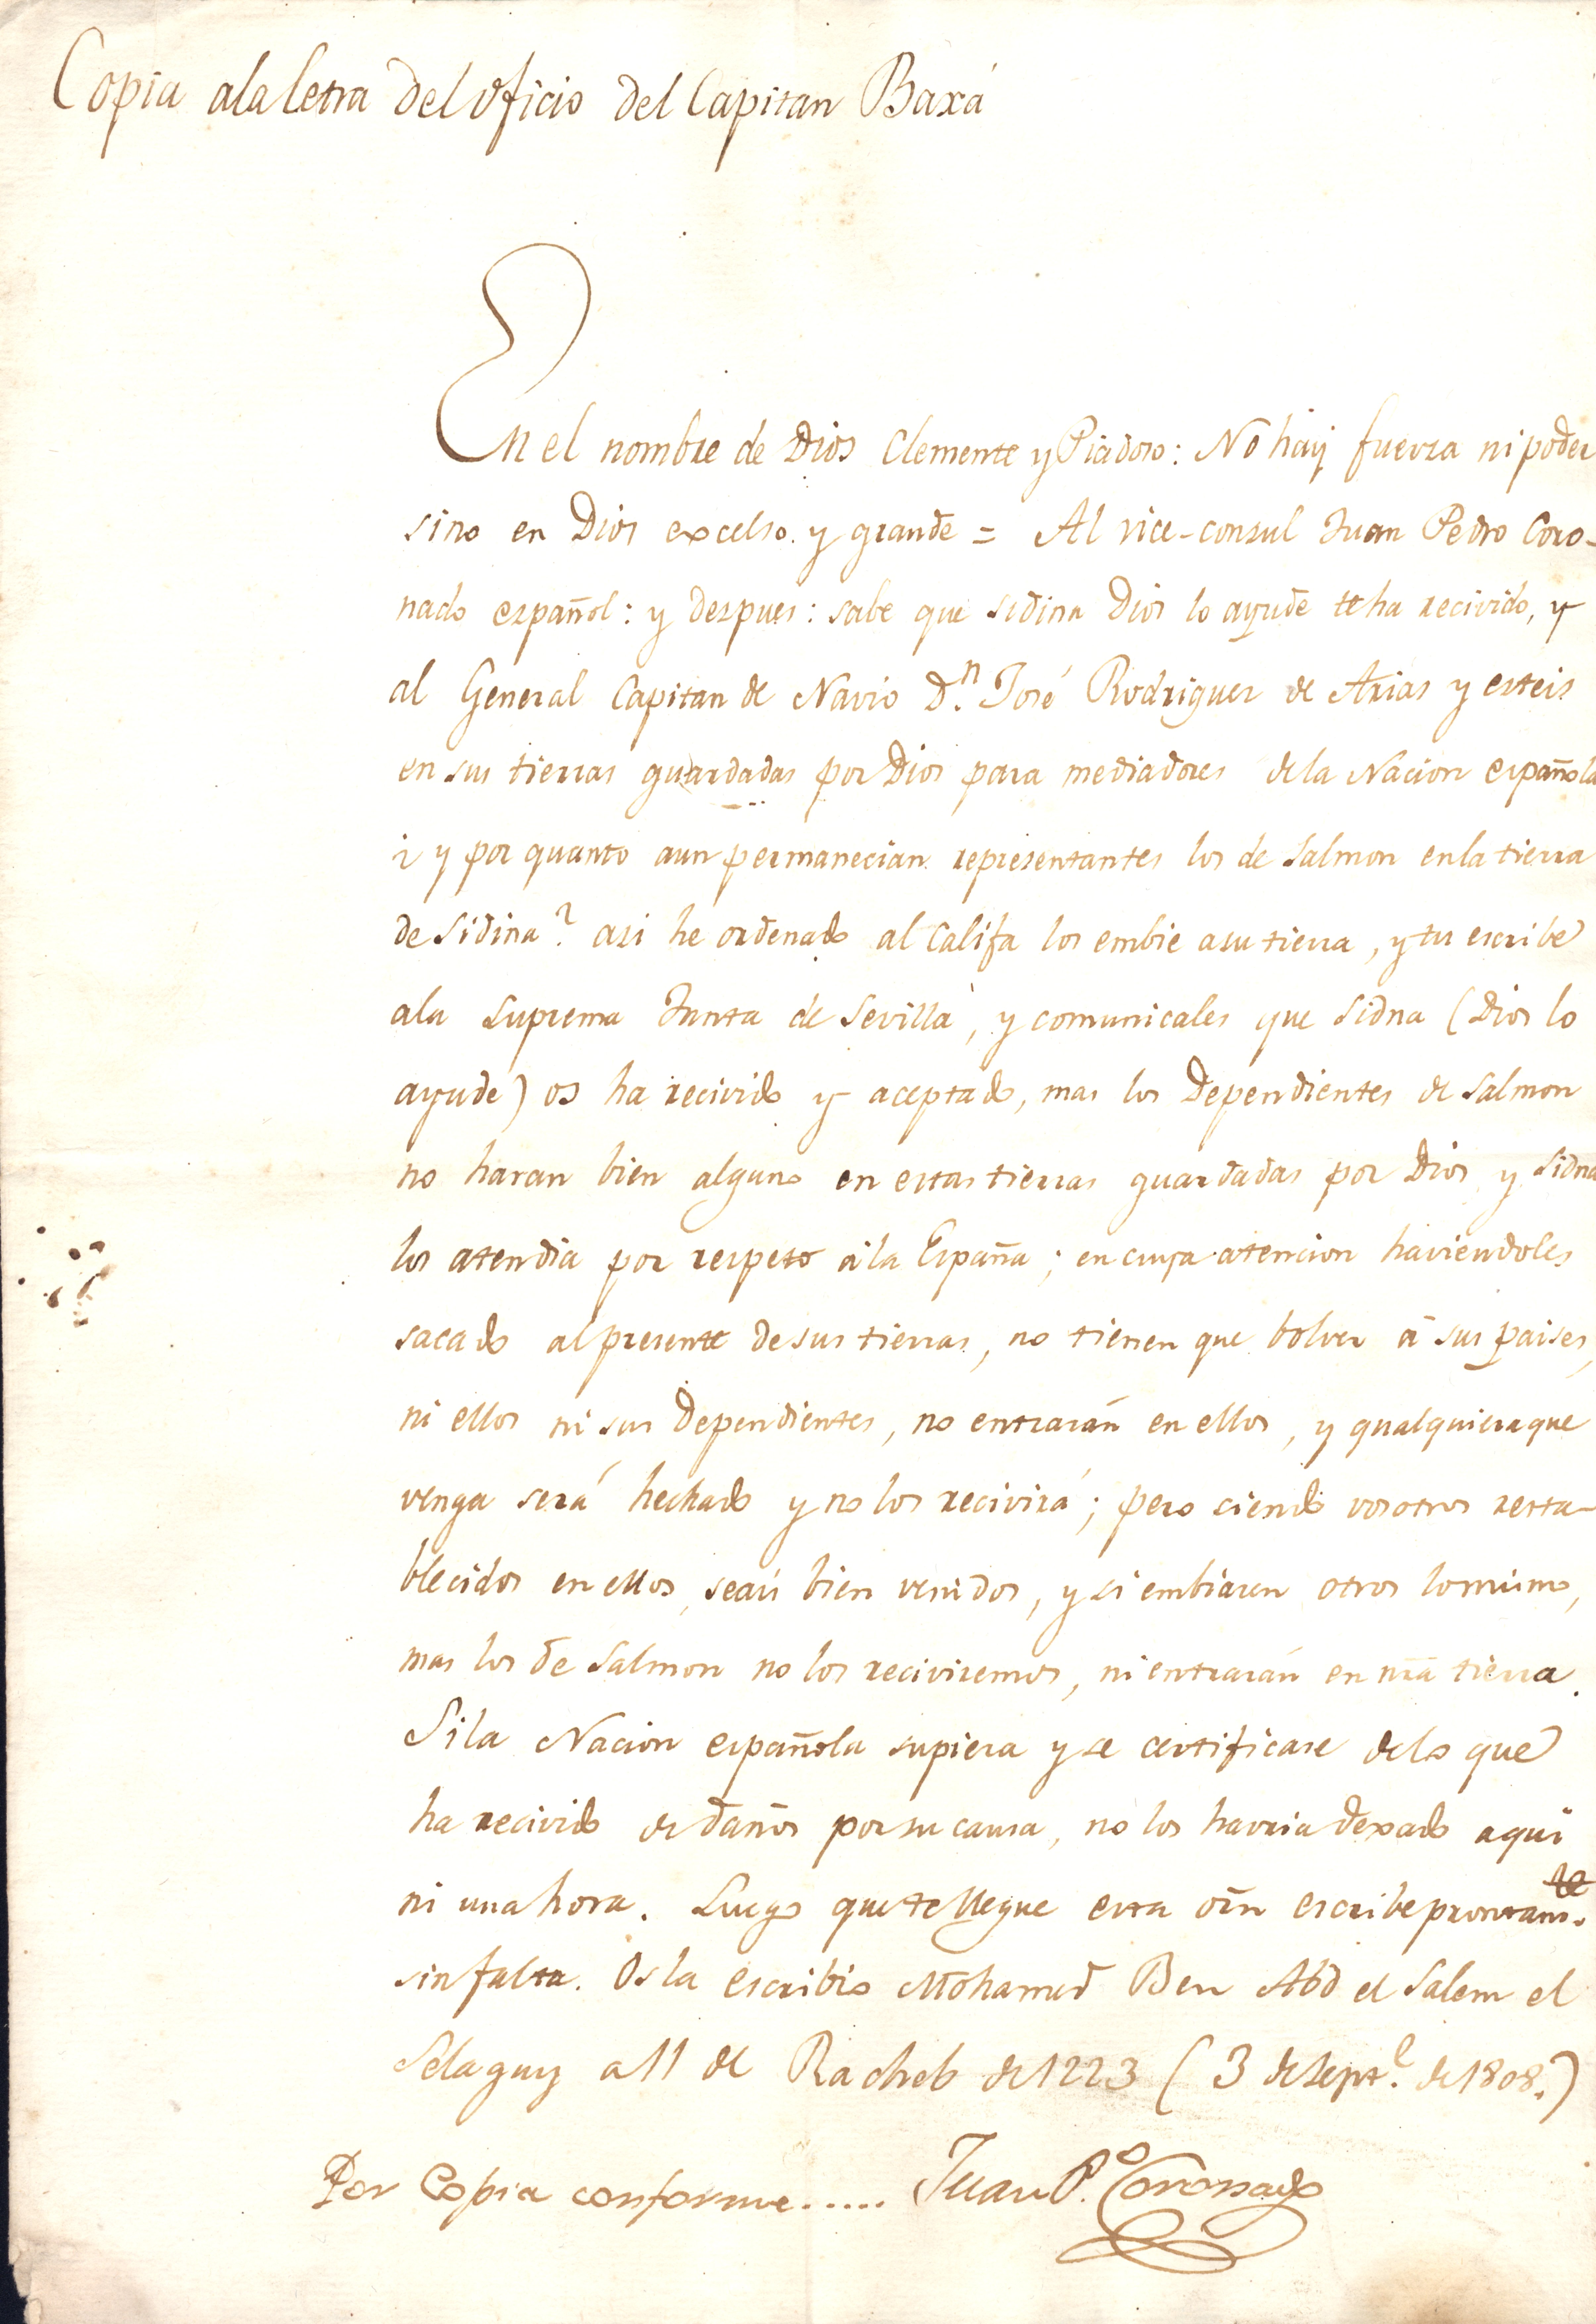 Copia ala letra del oficio del Capitan Baxá
En el nombre de Dios Clemente y Piadoso: No hay fuerza ni poder
sino en Dios excelso y grande = Al vice-consul Juan Pedro Coro-
nado español: y despues: sabe que Sidina Dios lo ayude te ha recivido, y
al General Capitan de Navio D.n José Rodriguez de Arias y esteis
en sus tierras guardadas por Dios para mediadores dela Nacion española
¿ y por quanto aun permanecian representantes los de Salmon enla tierra
de Sidina? asi he ordenado al Califa los embie asu tierra, y tu escribe
ala Suprema Junta de Sevilla, y comunicales que Sidna (Dios lo
ayude) os ha recivido y aceptado, mas los Dependientes de Salmon
no haran bien alguno en estas tierras guardadas por Dios y Sidna
los atendia por respeto àla España; en cuya atencion haviendoles
sacado alpresente desus tierras, no tienen que bolver à sus paises,
ni ellos ni sus Dependientes, no entrarán en ellos, y qualquiera que
venga será hechado y no los recivirá; pero siendo vosotros resta-
blecidos en ellos, seais bien venidos, y si embiaren otros lo mismo,
mas los de Salmon no los reciviremos, ni entrarán en nrã tierra.
Sila Nacion española supiera y se certificase delo que
ha recivido de daños por su causa, no los havria dexado aqui
ni una hora. Luego que te llegue esta orñ escribe prontam.te
sin falta. Osla escribio Mohamed Ben Abd el Salem el
Selaguy a 11 de Racheb de 1223 (3 de Sept.e de 1808.)
Por Copia conforme..... Juan P.o Coronado